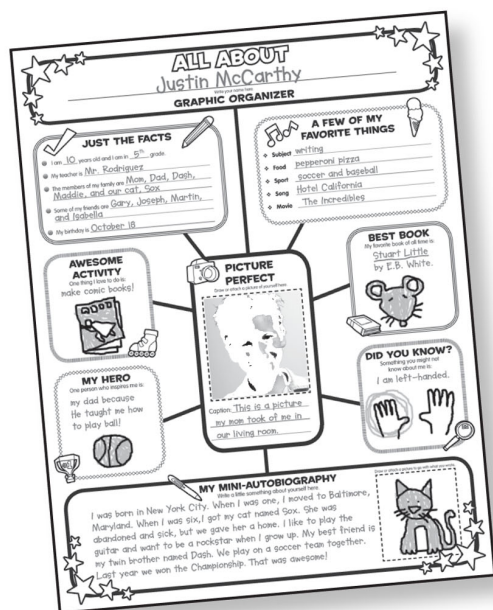 ALL ABOUT
Justin McCarthy
Write your name here.
GRAPHIC ORGANIZER
JUST THE FACTS
I am 10 years old and I am in 5th grade.
My teacher is Mr. Rodriguez
The members of my family are Mom, Dad, Dash,
Maddie, and our cat, Sox
Some of my friends are Gary, Joseph, Martin,
and Isabella
My birthday is October 18
A FEW OF MY
FAVORITE THINGS
Subject writing
Food pepperoni pizza
Sport soccer and baseball
Song Hotel California
Movie The Incredibles
AWESOME
ACTIVITY
One thing I love to do is:
make comic books!
PICTURE
PERFECT
Draw or attach a picture of yourself here.
Caption: This is a picture
my mom took of me in
our living room.
BEST BOOK
My favorite book of all time is:
Stuart Little
by E.B. White.
MY HERO
One person who inspires me is:
my dad because
He taught me how
to play ball!
DID YOU KNOW?
Something you might not
know about me is:
I am left-handed.
MY MINI-AUTOBIOGRAPHY
Write a little something about yourself here.
I was born in New York City. When I was one, I moved to Baltimore,
Maryland. When I was six, I got my cat named Sox. She was
abandoned and sick, but we gave her a home. I like to play the
guitar and want to be a rockstar when I grow up. My best friend is
my twin brother named Dash. We play on a soccer team together.
Last year we won the Championship. That was awesome!
Draw or attach a picture to go with what you wrote.